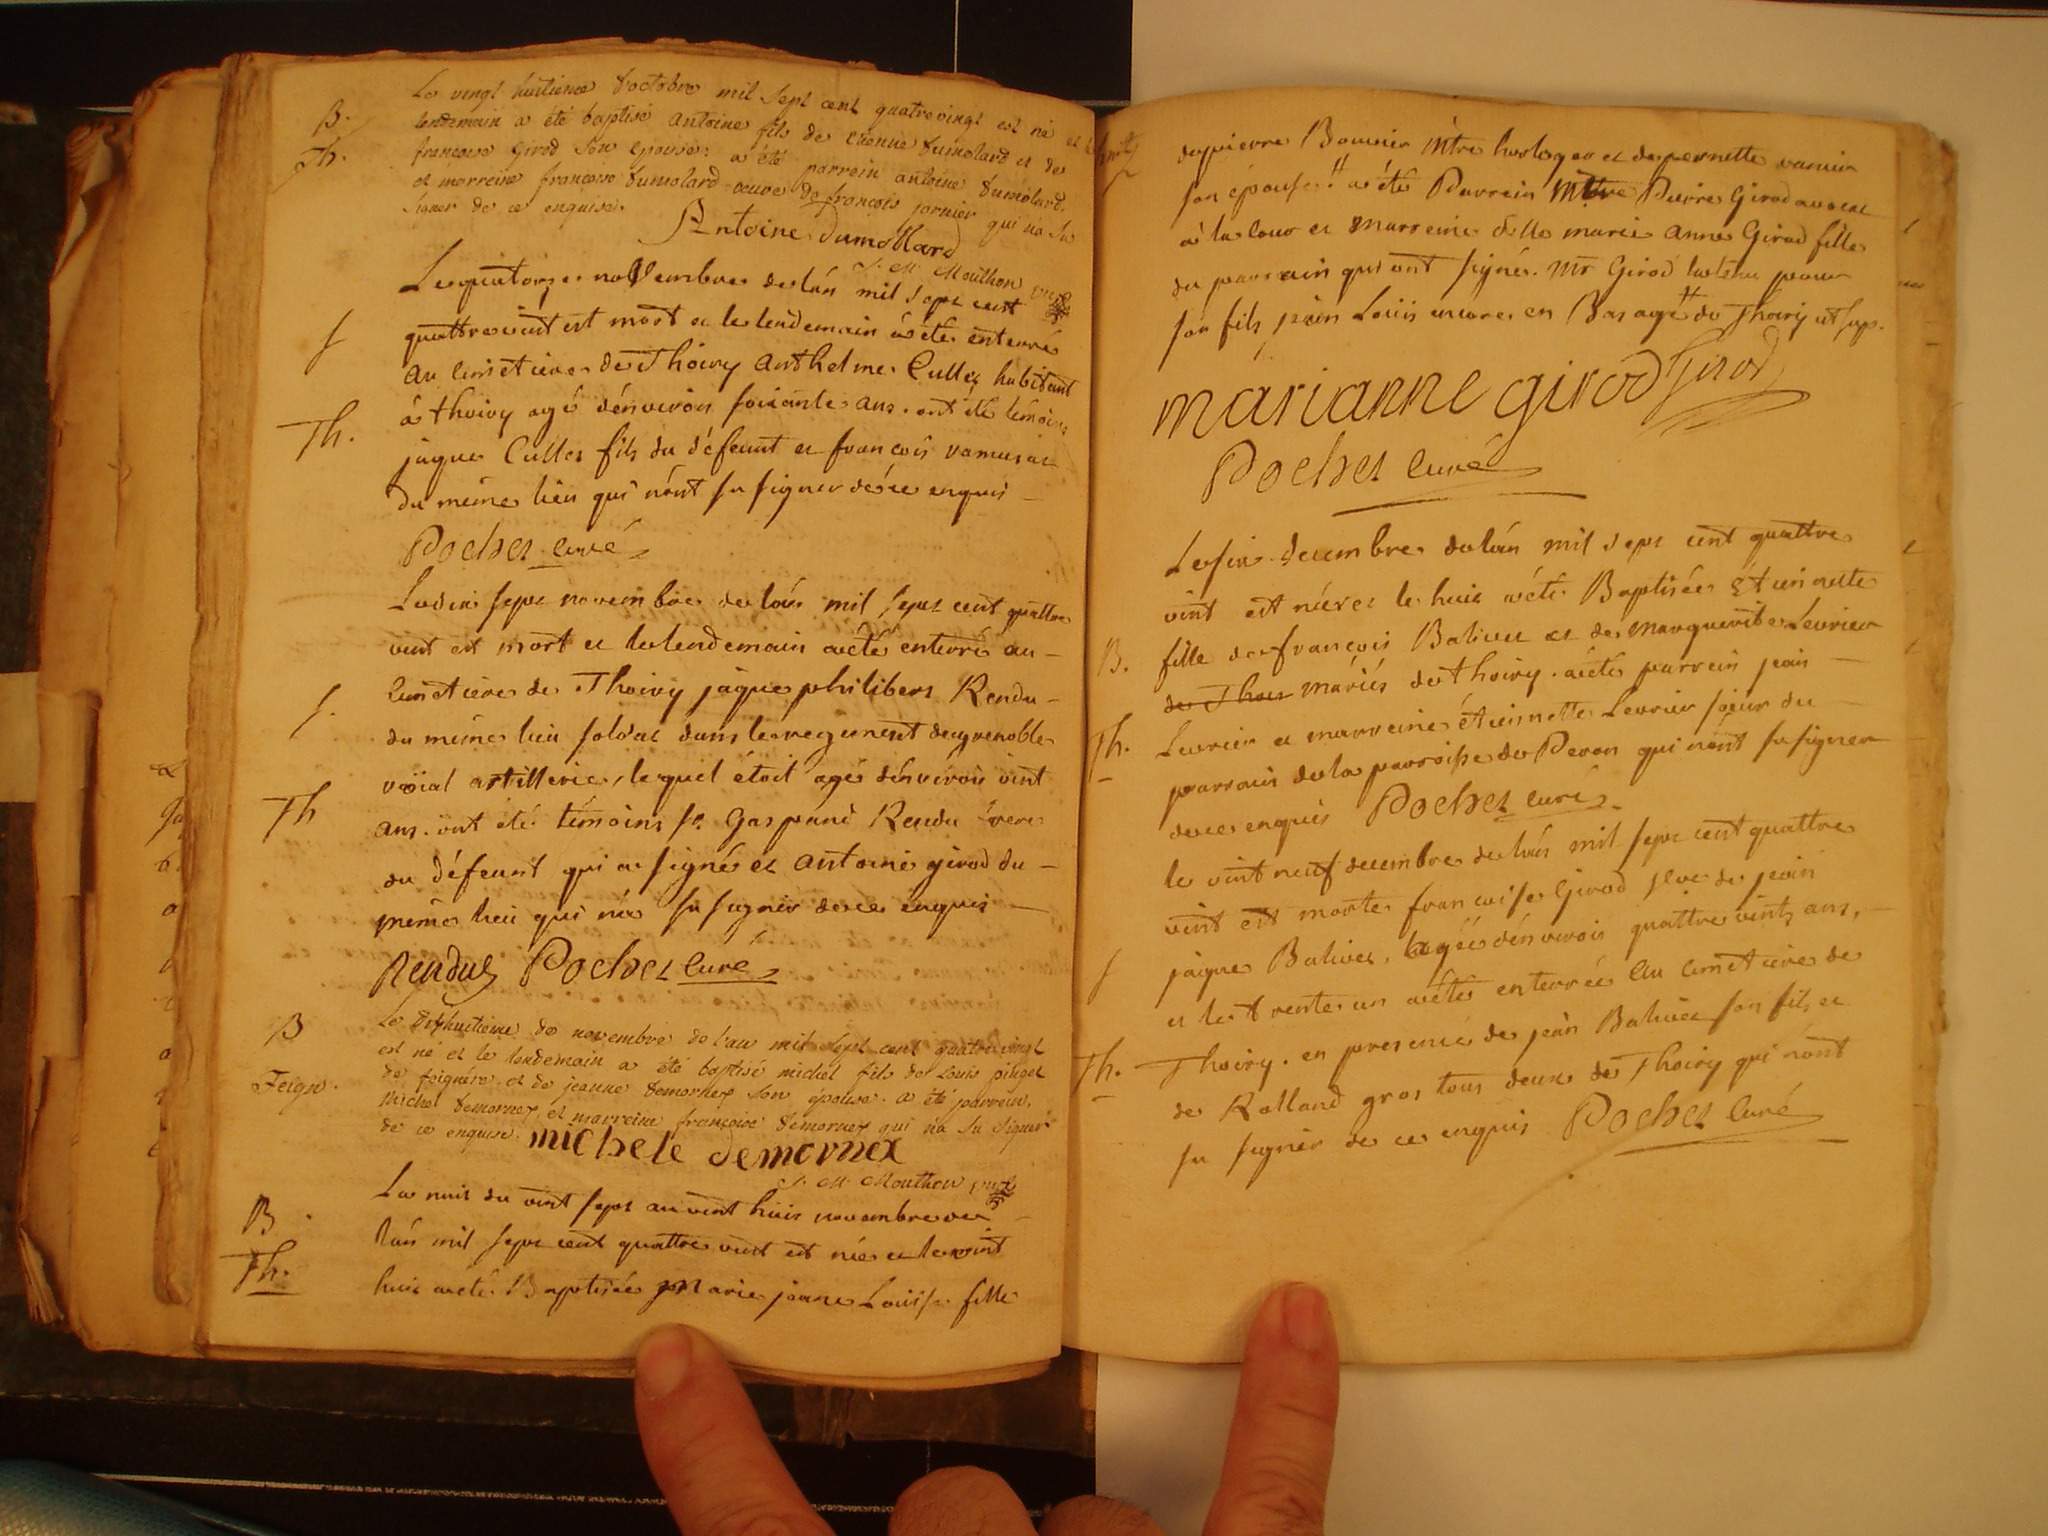 B.
Th.
Le vingt huitieme d'octobre mil sept cent quatrevingt est né et le
lendemain a été baptisé antoine fils de etienne dumolard et de
françoise girod son epouse: a été parrein antoine dumolard.
et marreine françoise dumolard veuve de françois jornier qui na su
signer de ce enquise.
Antoine dumollard
J. M. Mouthon vic
Le quatorze novembre de lán mil sept cent
f
quattre vint est mort et le lendemain à été enterré
au cimetiere de Thoiry anthelme Cullet habitent
Th.
à thoiry agé dénviron soixante ans. ont été témoins
jaque Cullet fils du défeunt et françois
du méme lieu qui nónt su signer de ce enquis
Pochet curé
Le dix sept novembre de lán mil sept cent quattre
vint est mort et le lendemain a été enterré au
f.
cimetiere de Thoiry jaque philibert Rendu
du méme lieu soldat dans le regiment de grenoble
Th
roïal artillerie, lequel étoit agé dénviron vint
ans. ont été témoins sr. Gaspard Rendu frere
du défeunt qui a signé et antoine girod du
méme lieu qui na su signer de ce enquis
Rendu Pochet curé
B
Le dixhuitieme de novembre de l'an mil sept cent quatrevingt
est né et le lendemain a été baptisé michel fils de Louis pinget
Feign.
de feignére et de jeanne demornex son epouse. a été parrein,
michel demornex et marreine françoise demornex qui na su signer
de ce enquise.
michele demornex
J. M. Mouthon vic
B
La nuit du vint sept au vint huit novembre de
Th.
lán mil sept cent quattre vint est née et le vint
huit a été Baptisée Marie jeane Louise fille
de pierre Bounier Mtre horloger et de pernette vamier
son épouse. a été Parrein Mtre Pierre Girod avocat
à la Cour et marreine dlle marie Anne Girod fille
du parrain qui ont signé. Mr Girod pour
son fils jean Louis encore en Bas age de Thoiry
marianne girod Girod
Pochet curé
Le six decembre de lán mil sept cent quattre
vint est née et le huit a été Baptisée Etiennette
B.
fille de françois Balivet et de marguerite Levrier
de Thoi mariés de Thoiry. a été parrein jean
Th.
Levrier et marreine étiennette Levrier soeur du
parrain de la parroisse de Peron qui nónt su signer
de ce enquis Pochet curé
le vint neuf decembre de lán mil sept cent quattre
vint est morte françoise Girod veve de jean
f
jaque Balivet, agée dénviron quattre vint ans,
et le trente un a été enterrée au cimetiere de
Th.
Thoiry. en presence de jean Balivet son fils et
de Rolland gros tous deux de Thoiry qui nont
su signer de ce enquis Pochet Curé